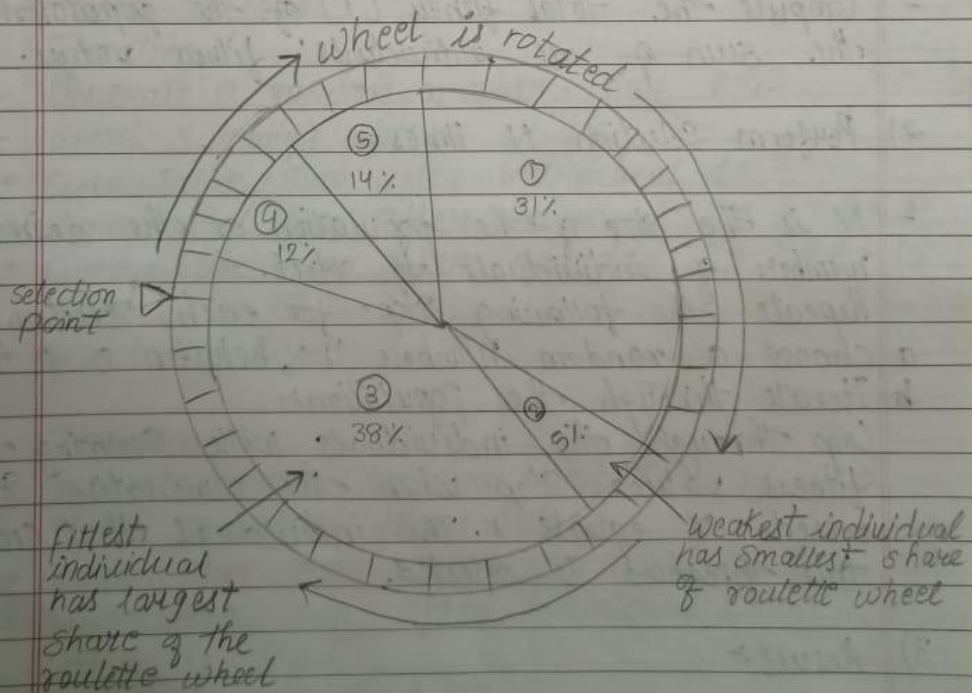 wheel is rotated
⑤
14%
①
31%
④
12%
selection
point
③
38%
②
5%
Fittest
individual
has largest
share of the
roulette wheel
weakest individual
has smallest share
of roulette wheel